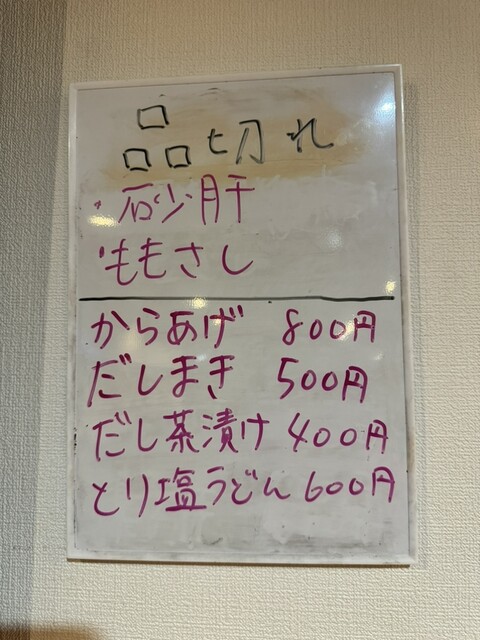 品切れ
・砂肝
・ももさし
からあげ 800円
だしまき 500円
だし茶漬け 400円
とり塩うどん 600円